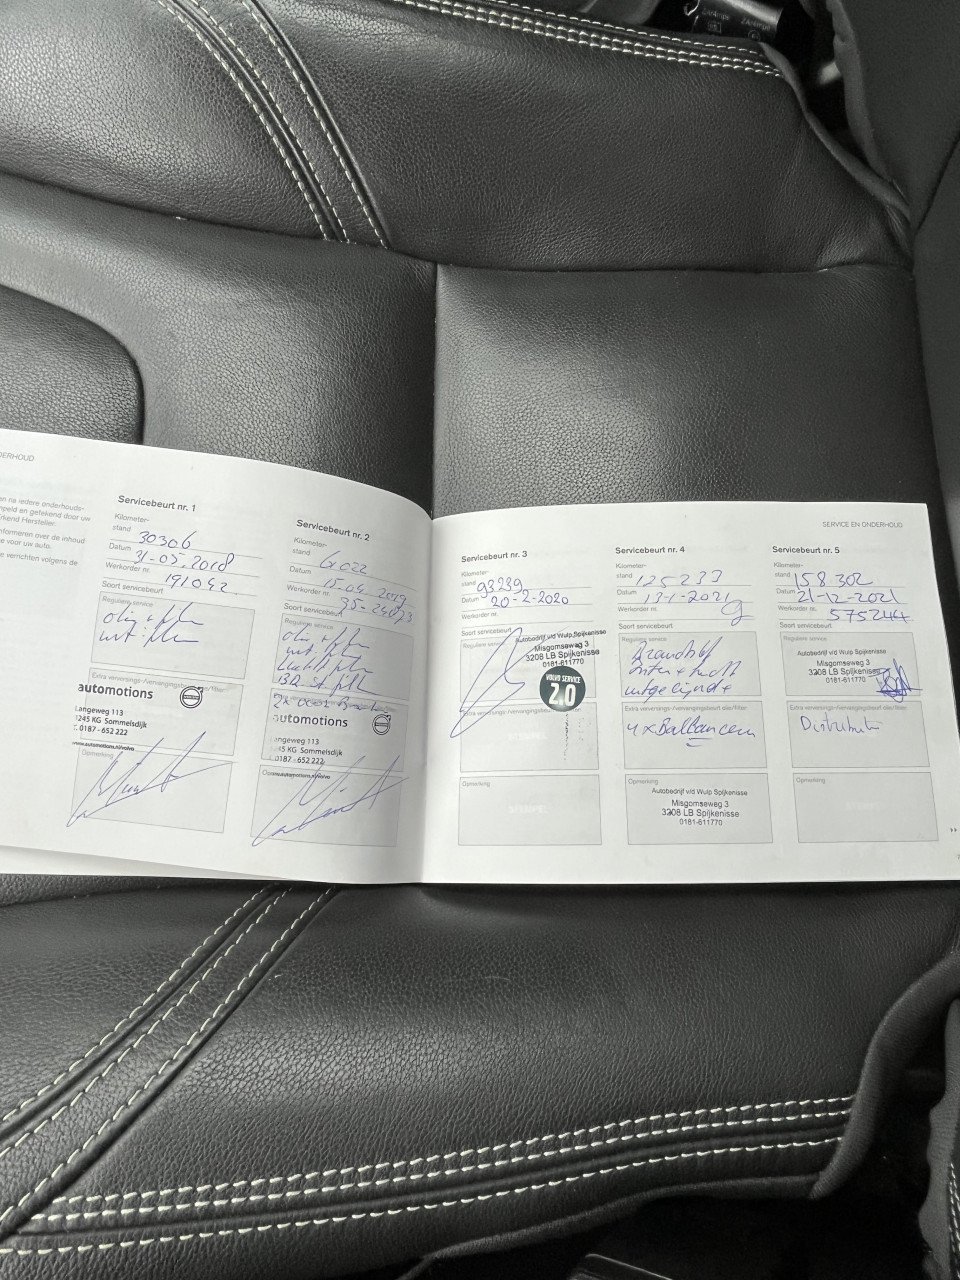 2A/4mps
DERHOUD
en na iedere onderhouds-
mpeld en getekend door uw
rkend Hersteller.
nformeren over de inhoud
e voor uw auto.
te verrichten volgens de
Servicebeurt nr. 1
Kilometer-
stand 30306
Datum 31-05-2018
Werkorder nr. 191042
Soort servicebeurt
Reguliere service
olie + filter
int. filter
Extra verversings-/vervangingsbeurt olie/filter
automotions
VOLVO
Langeweg 113
3245 KG Sommelsdijk
T. 0187 - 652 222
www.automotions.nl/volvo
Opmerking
Servicebeurt nr. 2
Kilometer-
stand 61022
Datum 15-04-2019
Werkorder nr. 35-24073
Soort servicebeurt
Reguliere service
olie + filter
int. filter
Luchtfilter
Extra verversings-/vervangingsbeurt
automotions
Langeweg 113
3245 KG Sommelsdijk
T. 0187 - 652 222
www.automotions.nl/volvo
SERVICE EN ONDERHOUD
Servicebeurt nr. 3
Kilometer-
stand 93239
Datum 20-2-2020
Werkorder nr.
Soort servicebeurt
Reguliere service
Autobedrijf v/d Wulp Spijkenisse
Misgomseweg 3
3208 LB Spijkenisse
0181-611770
VOLVO SERVICE
2.0
Extra verversings-/vervangingsbeurt olie/filter
STEMPEL
Opmerking
STEMPEL
Servicebeurt nr. 4
Kilometer-
stand 125233
Datum 13-1-2021
Werkorder nr.
Soort servicebeurt
Reguliere service
Brandstof
Extra verversings-/vervangingsbeurt olie/filter
4x Ballancen
Opmerking
Autobedrijf v/d Wulp Spijkenisse
Misgomseweg 3
3208 LB Spijkenisse
0181-611770
Servicebeurt nr. 5
Kilometer-
stand 158302
Datum 21-12-2021
Werkorder nr. 575244
Soort servicebeurt
Reguliere service
Autobedrijf v/d Wulp Spijkenisse
Misgomseweg 3
3208 LB Spijkenisse
0181-611770
Extra verversings-/vervangingsbeurt olie/filter
Distributie
Opmerking
STEMPEL